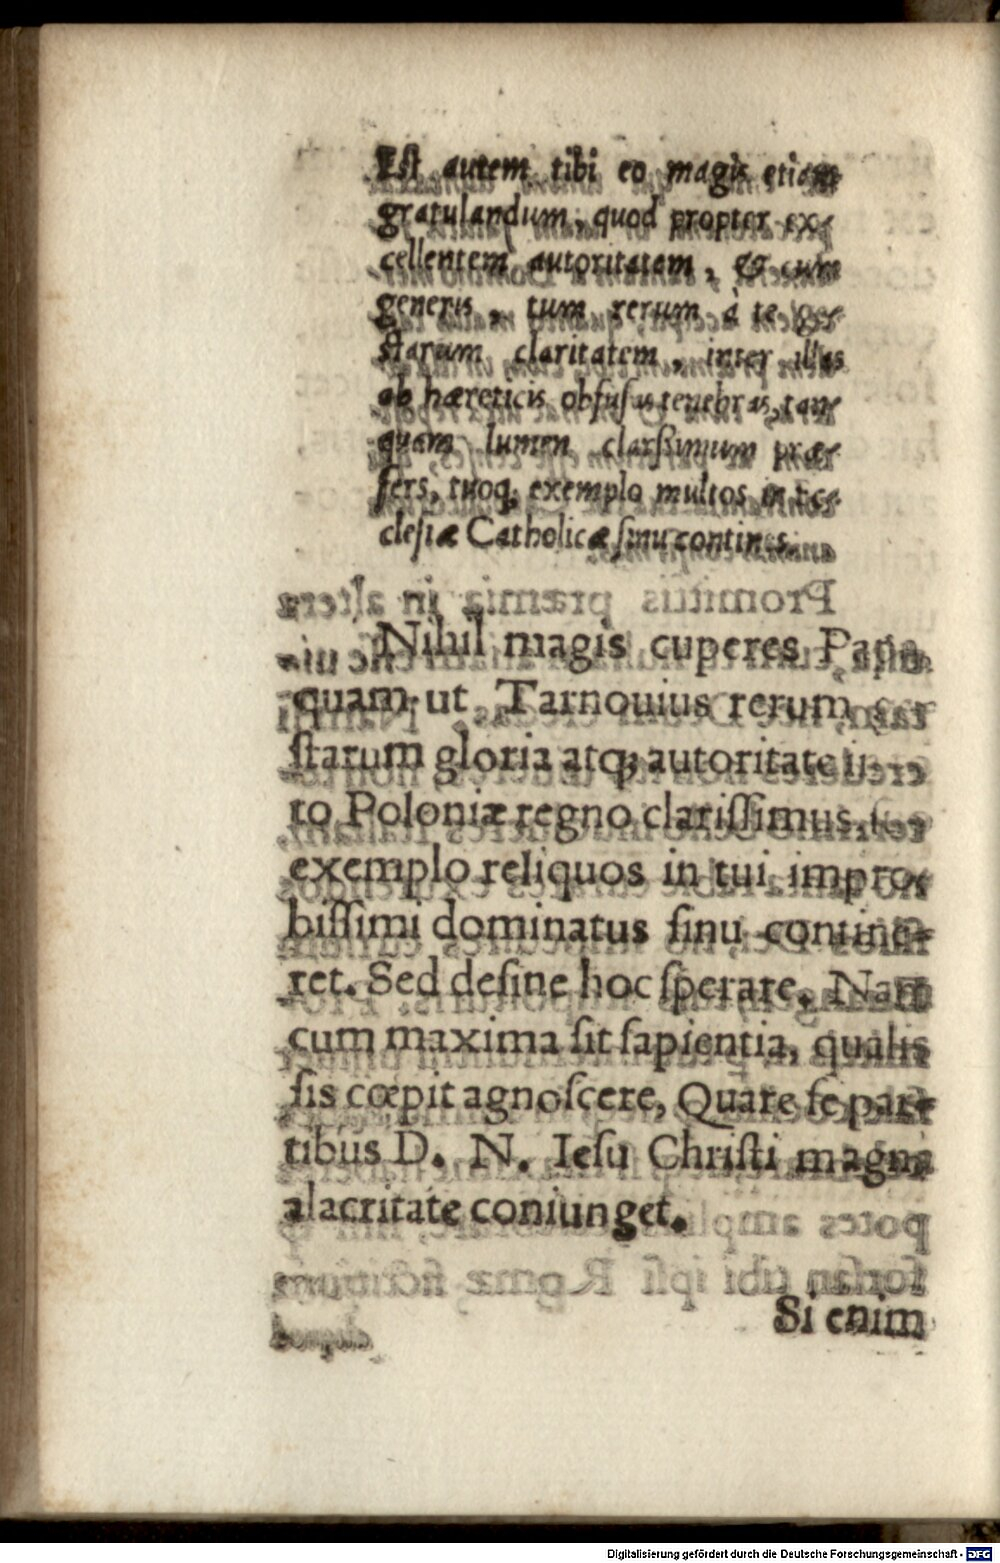 Eſt autem tibi eo magis etiam
gratulandum, quod propter ex-
cellentem autoritatem, & cum
generis, tum rerum à te ge-
ſtarum claritatem, inter illas
ab hæreticis obfuſas tenebras, tan-
quam lumen clarißimum præ-
fers, tuoq; exemplo multos in Ec-
cleſiæ Catholicæ ſinu contines.
Nihil magis cuperes Papa
quam ut Tarnouius rerum ge-
ſtarum gloria atq; autoritate in
to Poloniæ regno clariſſimus,
exemplo reliquos in tui impro-
biſſimi dominatus ſinu contine-
ret. Sed deſine hoc ſperare. Nam
cum maxima ſit ſapientia, qualis
ſis cœpit agnoſcere, Quare ſe par-
tibus D. N. Ieſu Chriſti magna
alacritate coniunget.
Si enim
Digitalisierung gefördert durch die Deutsche Forschungsgemeinschaft - DFG